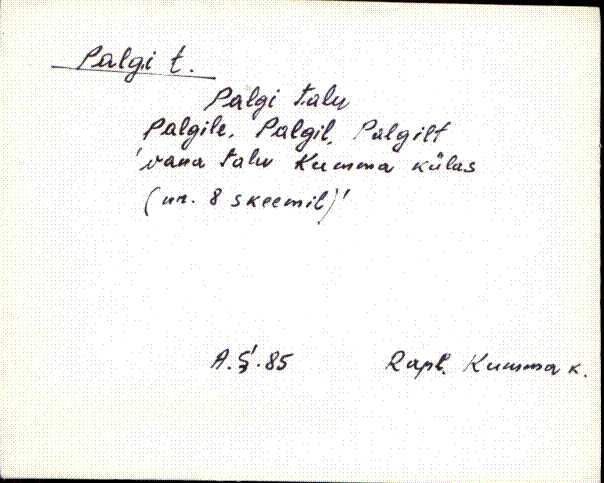 Palgi t.
Palgi talu
Palgile, Palgil, Palgilt
'vana talu Kumma külas
(nr. 8 skeemil)'
A. Š. 85 Rapl. Kumma k.